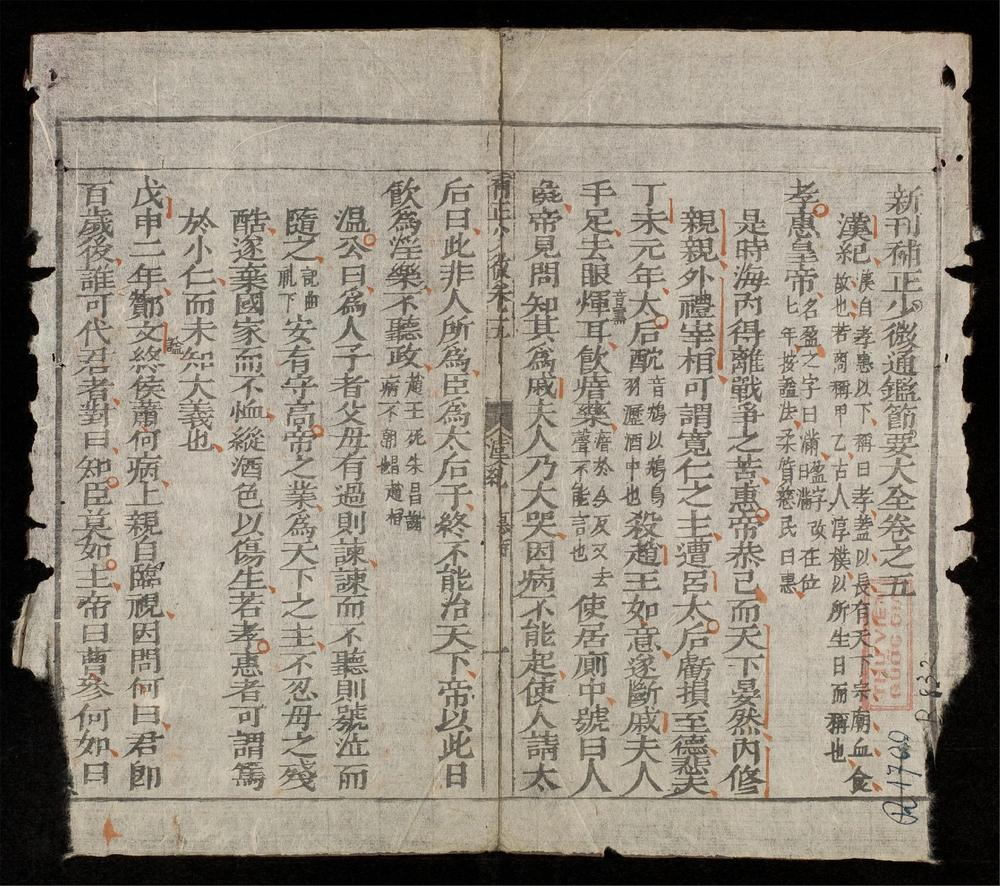 新刊補正少微通鑑節要大全卷之五
漢紀漢自孝惠以下稱曰孝盖以長有天下宗廟血食
故也若商稱甲乙古人淳樸以所生日而稱也
孝惠皇帝名盈之字曰滿盈字改在位
七年按謚法柔質慈民曰惠
是時海內得離戰爭之苦惠帝恭己而天下晏然內修
親親外禮宰相可謂寬仁之主遭呂太后虧損至德悲夫
丁未元年太后酖音鴆以鴆鳥
羽瀝酒中也殺趙王如意遂斷戚夫人
手足去眼煇音熏耳飲瘖藥瘖於今反又去
聲不能言也使居廁中號曰人
彘帝見問知其為戚夫人乃大哭因病不能起使人請太
后曰此非人所為臣為太后子終不能治天下帝以此日
飲為淫樂不聽政趙王死朱昌謝
病不朝趙相
溫公曰為人子者父母有過則諫諫而不聽則號泣而
隨之記曲
礼下安有守高帝之業為天下之主不忍母之殘
酷遂棄國家而不恤縱酒色以傷生若孝惠者可謂篤
於小仁而未知大義也
戊申二年酇文終謚侯蕭何病上親自臨視因問何曰君即
百歲後誰可代君者對曰知臣莫如主帝曰曹參何如曰